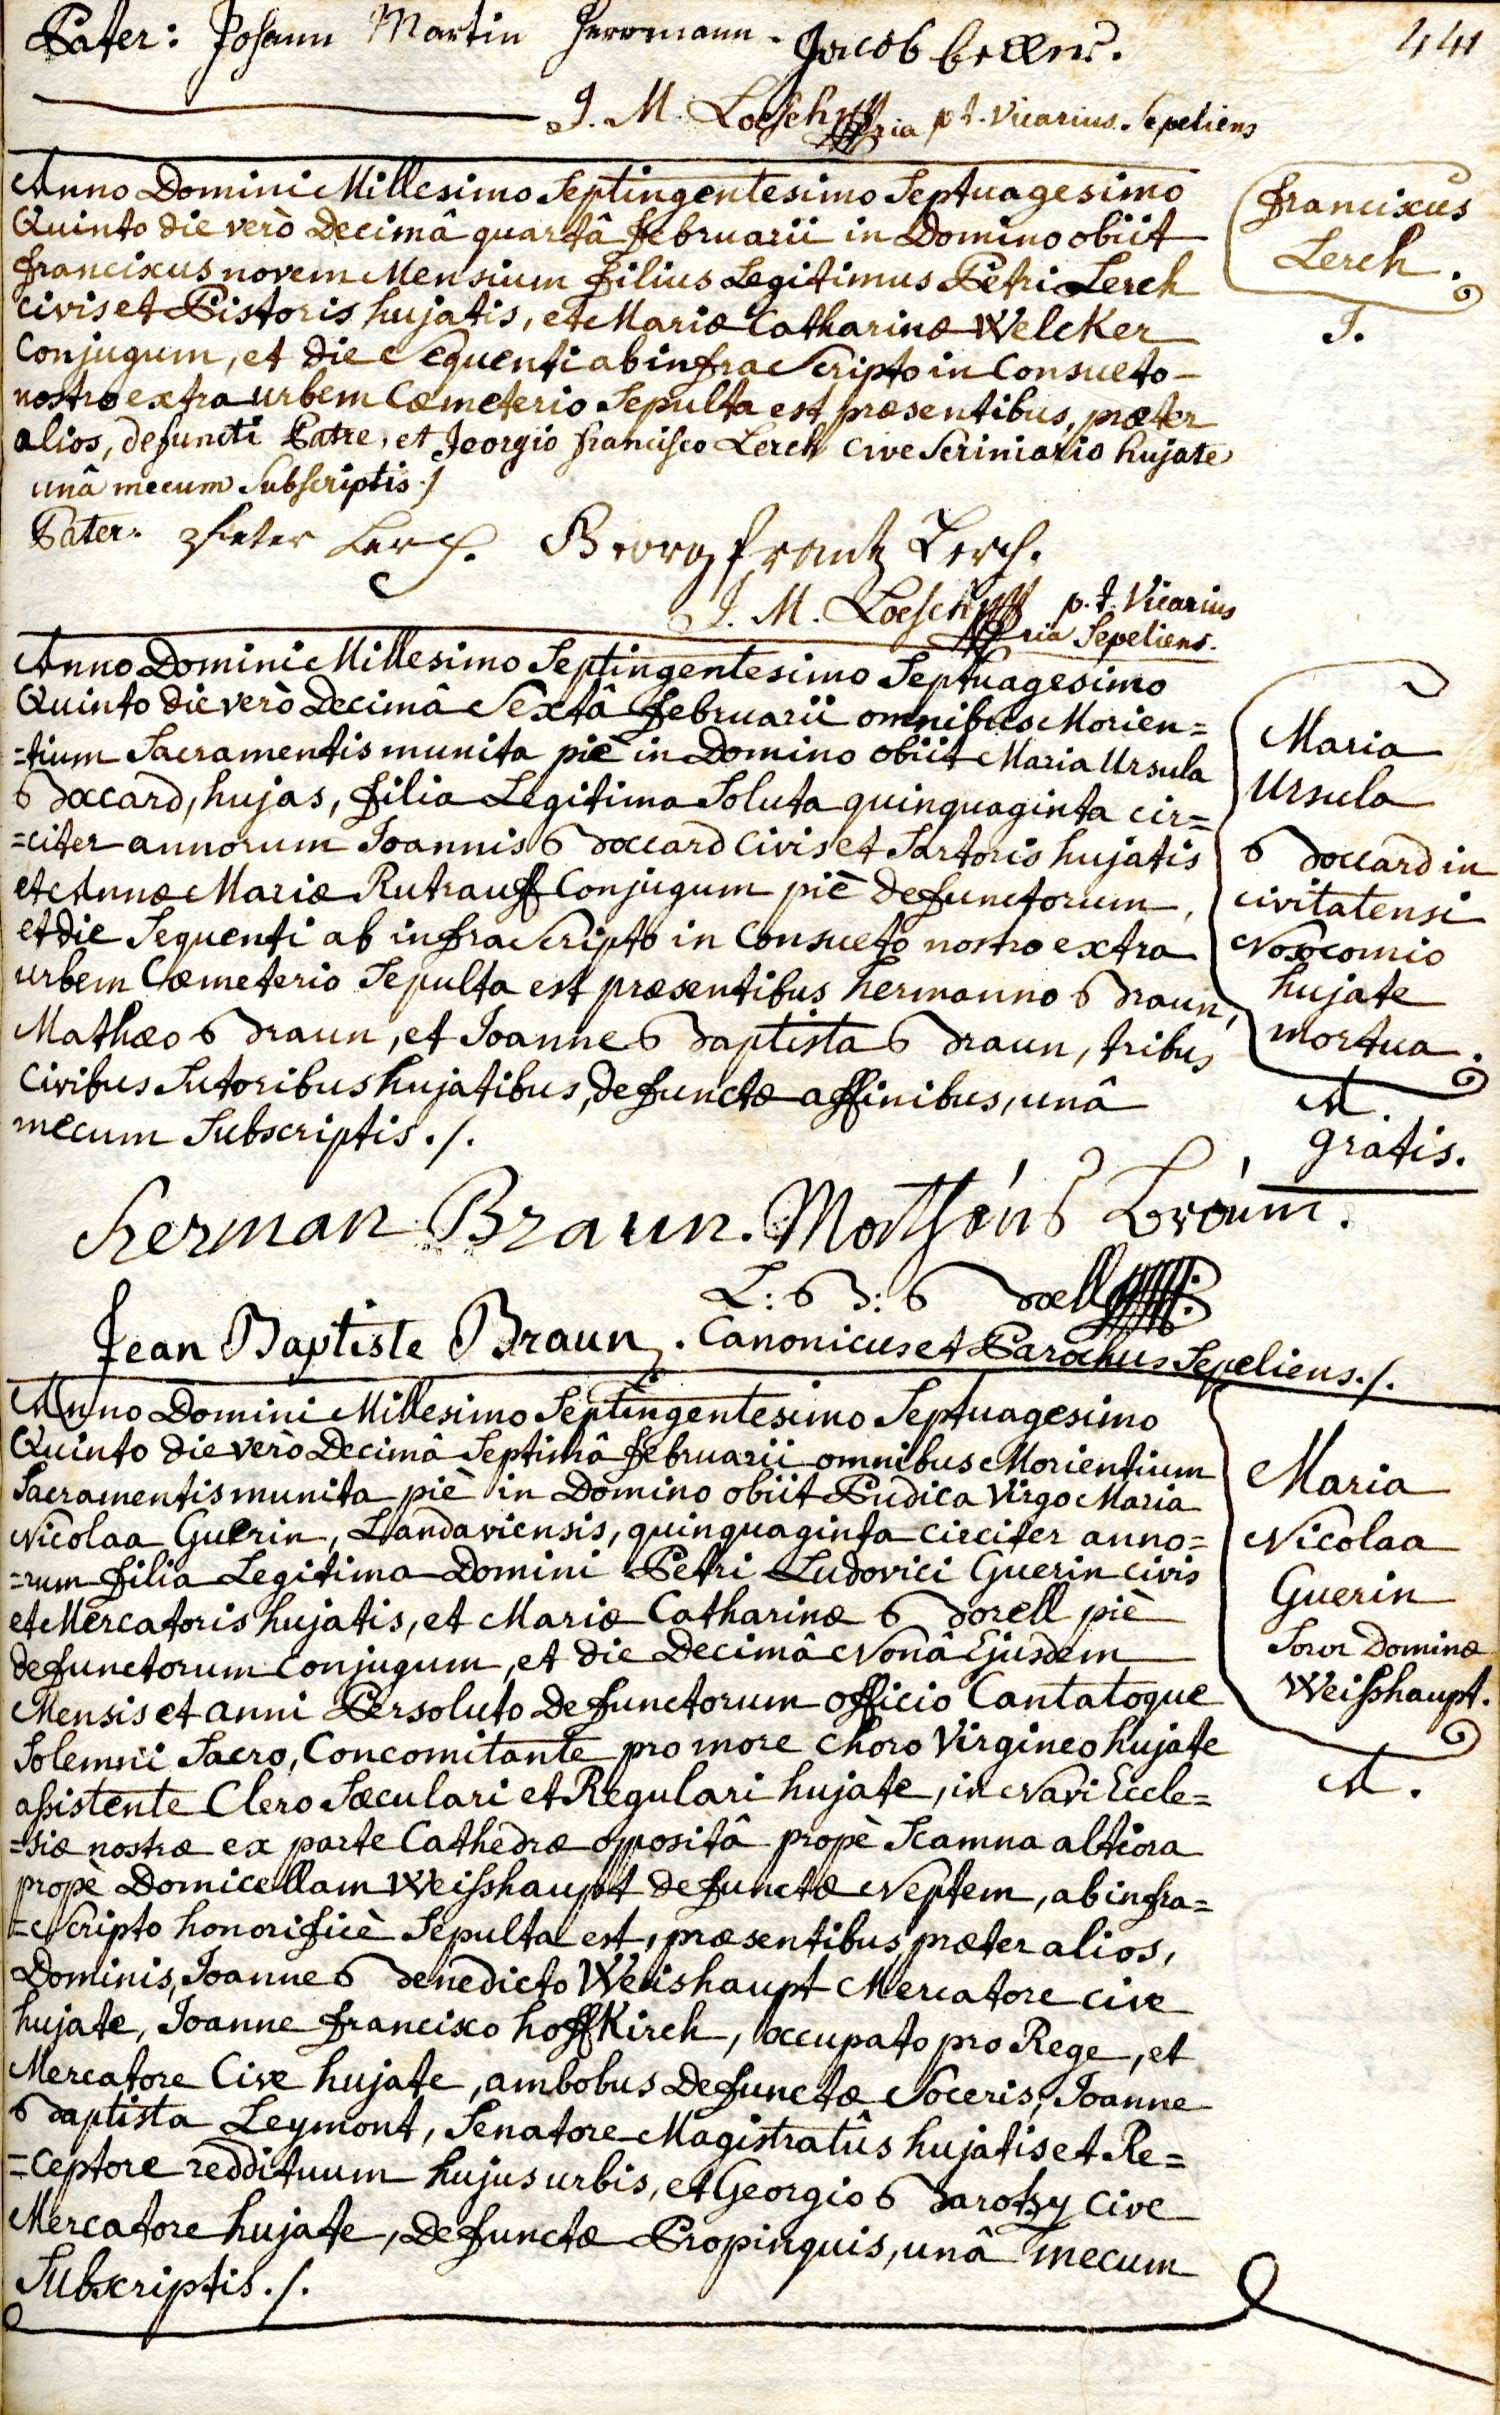 Pater: Johann Martin Herrmann. Jacob
441
J. M. Loesch p.t. Vicarius Sepeliens
Anno Domini Millesimo Septingentesimo Septuagesimo
Quinto die verò Decimâ quartâ februarii in Domino obiit
franciscus novem Mensium filius Legitimus Petri Lerch
civis et Pistoris hujatis, et Mariæ Catharinæ Welcker
Conjugum, et die Sequenti ab infra Scripto in Consueto
nostro extra urbem Cœmeterio Sepulta est, præsentibus, præter
alios, defuncti Patre, et Georgio francisco Lerch cive Scriniario hujate
unâ mecum Subscriptis ./
franciscus
Lerch.
J.
Pater: Pieter Lerch. Georg frantz Lerch.
J. M. Loesch p.t. Vicarius
Sepeliens.
Anno Domini Millesimo Septingentesimo Septuagesimo
Quinto die verò Decimâ Sextâ februarii omnibus Morien=
=tium Sacramentis munita piè in Domino obiit Maria Ursula
Boccard, hujas, filia Legitima Soluta quinquaginta cir=
=citer annorum Joannis Boccard Civis et Sartoris hujatis
et Annæ Mariæ Rutrauff Conjugum piè defunctorum,
et die Sequenti ab infra Scripto in Consueto nostro extra
urbem Cœmeterio Sepulta est præsentibus hermanno Braun,
Mathæo Braun, et Joanne Baptista Braun, tribus
Civibus Sutoribus hujatibus, defunctæ affinibus, unâ
mecum Subscriptis ./.
Maria
Ursula
Boccard in
civitatensi
Nosocomio
hujate
mortua.
A.
gratis.
Herman Braun. Matheus Braun.
L: B: Boell
Jean Baptiste Braun. Canonicus et Parochus Sepeliens ./.
Anno Domini Millesimo Septingentesimo Septuagesimo
Quinto die verò Decimâ Septimâ februarii omnibus Morientium
Sacramentis munita piè in Domino obiit Pudica Virgo Maria
Nicolaa Guerin, Landaviensis, quinquaginta circiter anno=
=rum filia Legitima Domini Petri Ludovici Guerin civis
et Mercatoris hujatis, et Mariæ Catharinæ Borell piè
defunctorum Conjugum, et die Decimâ Nonâ Ejusdem
Mensis et anni Persoluto Defunctorum officio Cantatoque
Solemni Sacro, Concomitante pro more Choro Virgineo hujate
assistente Clero Sæculari et Regulari hujate, in Navi Eccle=
=siæ nostræ ex parte Cathedræ oppositâ propè Scamna altiora
propè Domicellam Weisshaupt defunctæ Neptem, ab infra=
=Scripto honorificè Sepulta est, præsentibus præter alios,
Dominis, Joanne Benedicto Weishaupt Mercatore cive
hujate, Joanne francisco hoffKirch, occupato pro Rege, et
Mercatore Cive hujate, ambobus Defunctæ Soceris, Joanne
Baptista Leymont, Senatore Magistratûs hujatis et Re=
=ceptore reddituum hujus urbis, et Georgio Barotzy Cive
Mercatore hujate, Defunctæ Propinquis, unâ mecum
Subscriptis ./.
Maria
Nicolaa
Guerin
Soror Dominæ
Weisshaupt.
A.